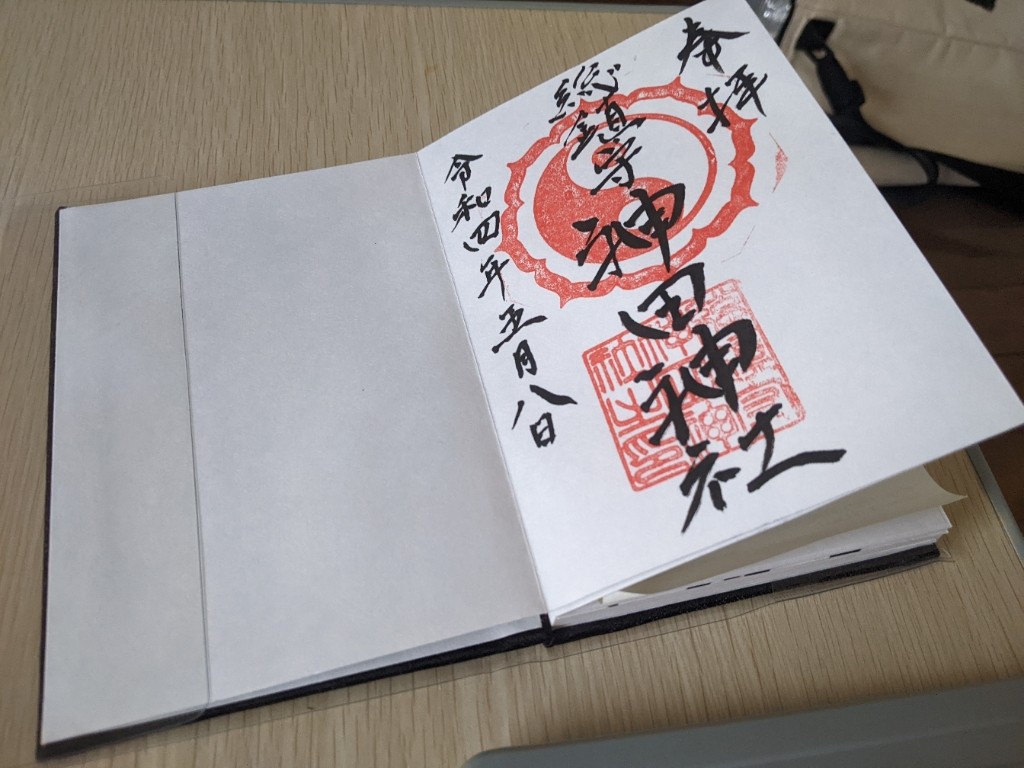 奉拝
総鎮守
神田神社
令和四年五月八日